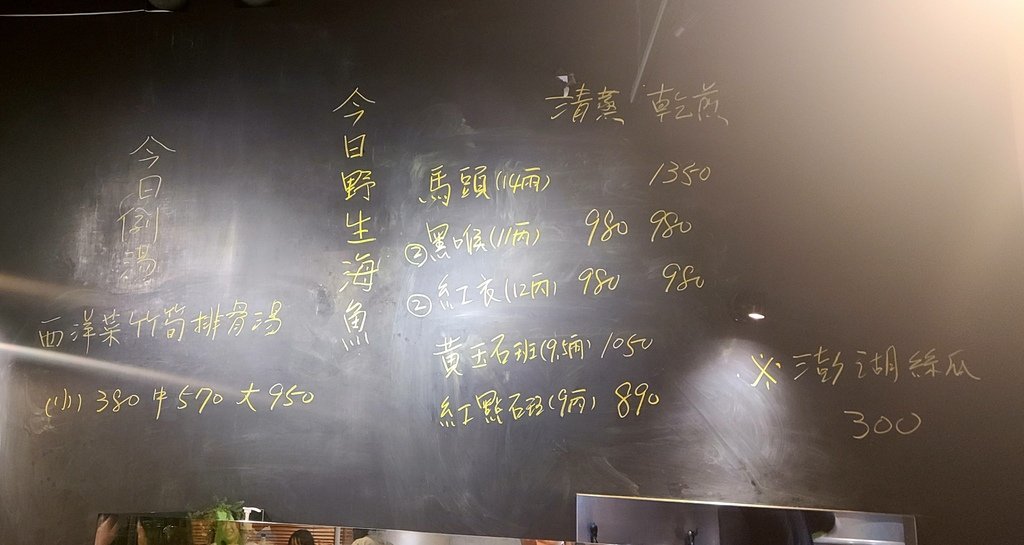 今日例湯
西洋菜竹筍排骨湯
(小) 380 中 570 大 950
今日野生海魚
清蒸 乾煎
馬頭(14両) 1350
②黑喉(11両) 980 980
②紅衣(12両) 980 980
黃玉石班(9.5両) 1050
紅點石班(9両) 890
※澎湖絲瓜
300